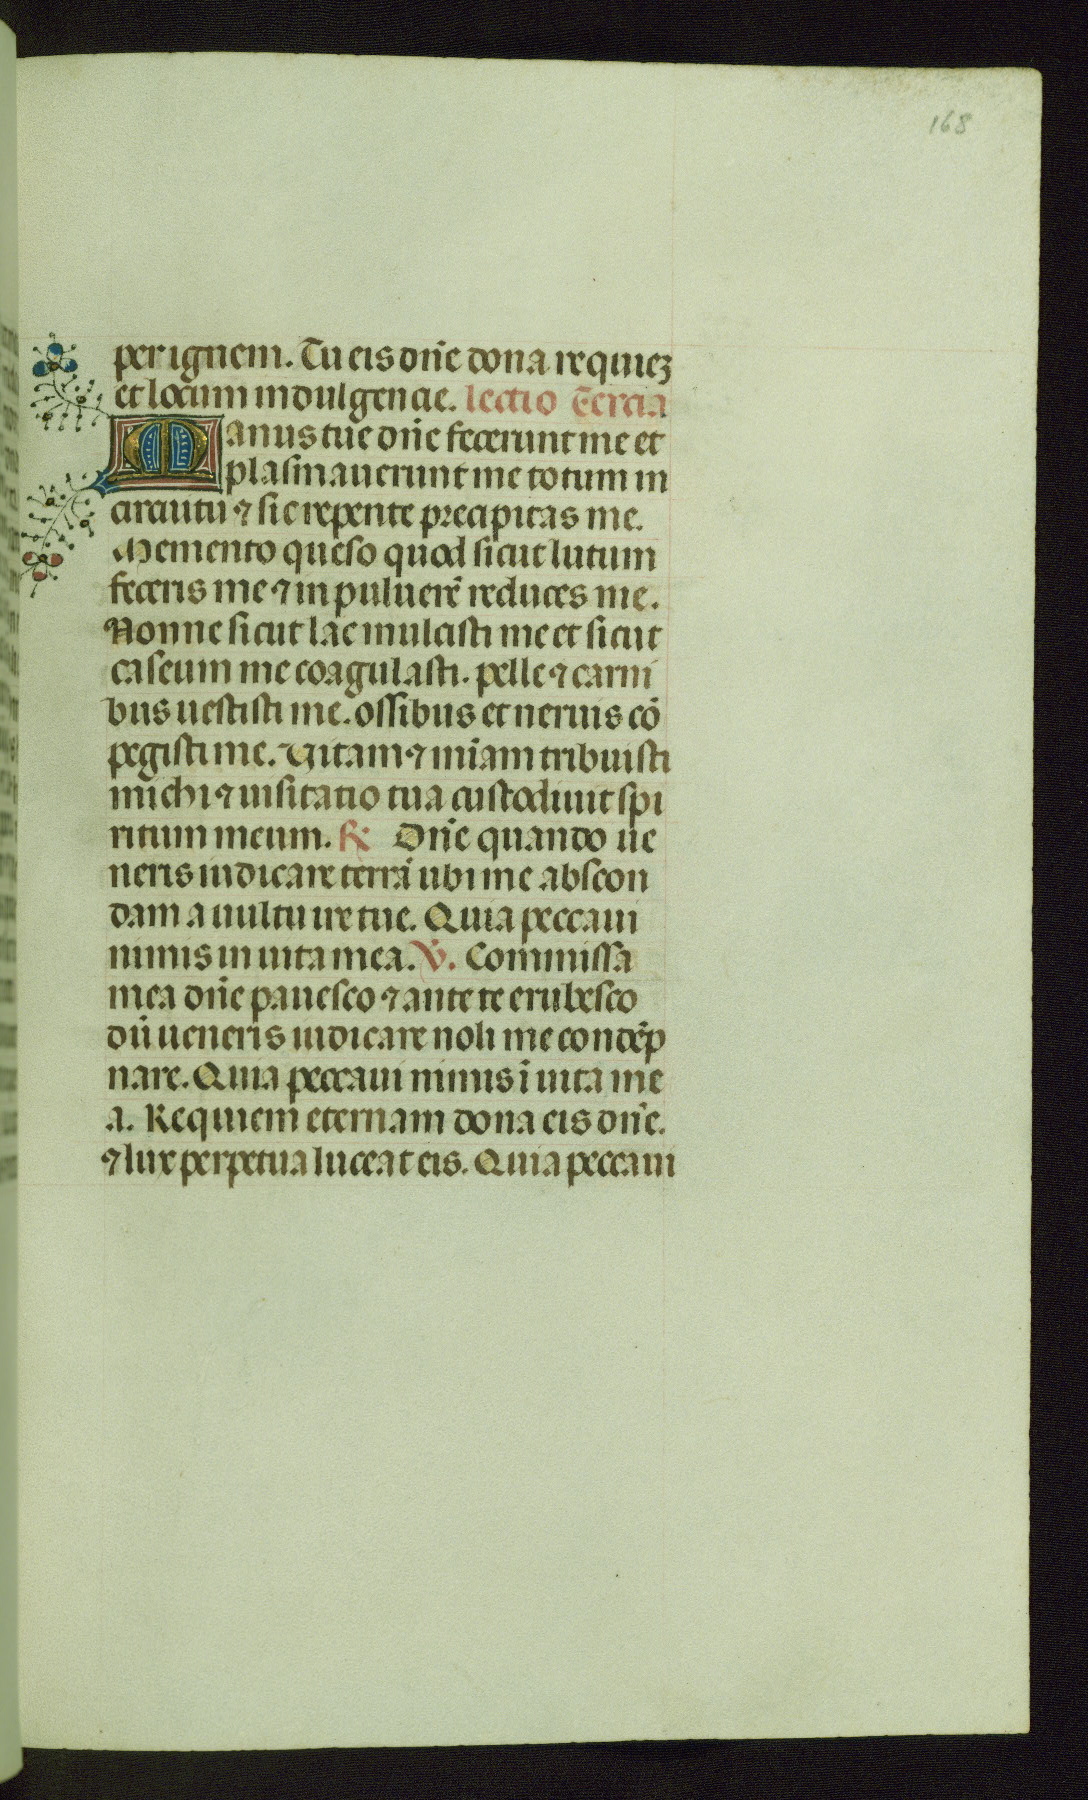 168
per ignem. Tu eis dn̄e dona requiez
et locum indulgencie. lectio Tercia
Manus tue dn̄e fecerunt me et
plasmauerunt me totum in
circuitu ⁊ sic repente precipitas me.
Memento queso quod sicut lutum
feceris me ⁊ in puluerē reduces me.
Nonne sicut lac mulcisti me et sicut
caseum me coagulasti. pelle ⁊ carni
bus uestisti me. ossibus et neruis cō
pegisti me. Uitam ⁊ mīam tribuisti
michi ⁊ uisitatio tua custodiuit spi
ritum meum. ℟ Dn̄e quando ue
neris iudicare terrā ubi me abscon
dam a uultu ire tue. Quia peccaui
nimis in uita mea. ℣. Commissa
mea dn̄e pauesco ⁊ ante te erubesco
dū ueneris iudicare noli me condēp
nare. Quia peccaui nimis ī uita me
a. Requiem eternam dona eis dn̄e.
⁊ lux perpetua luceat eis. Quia peccaui